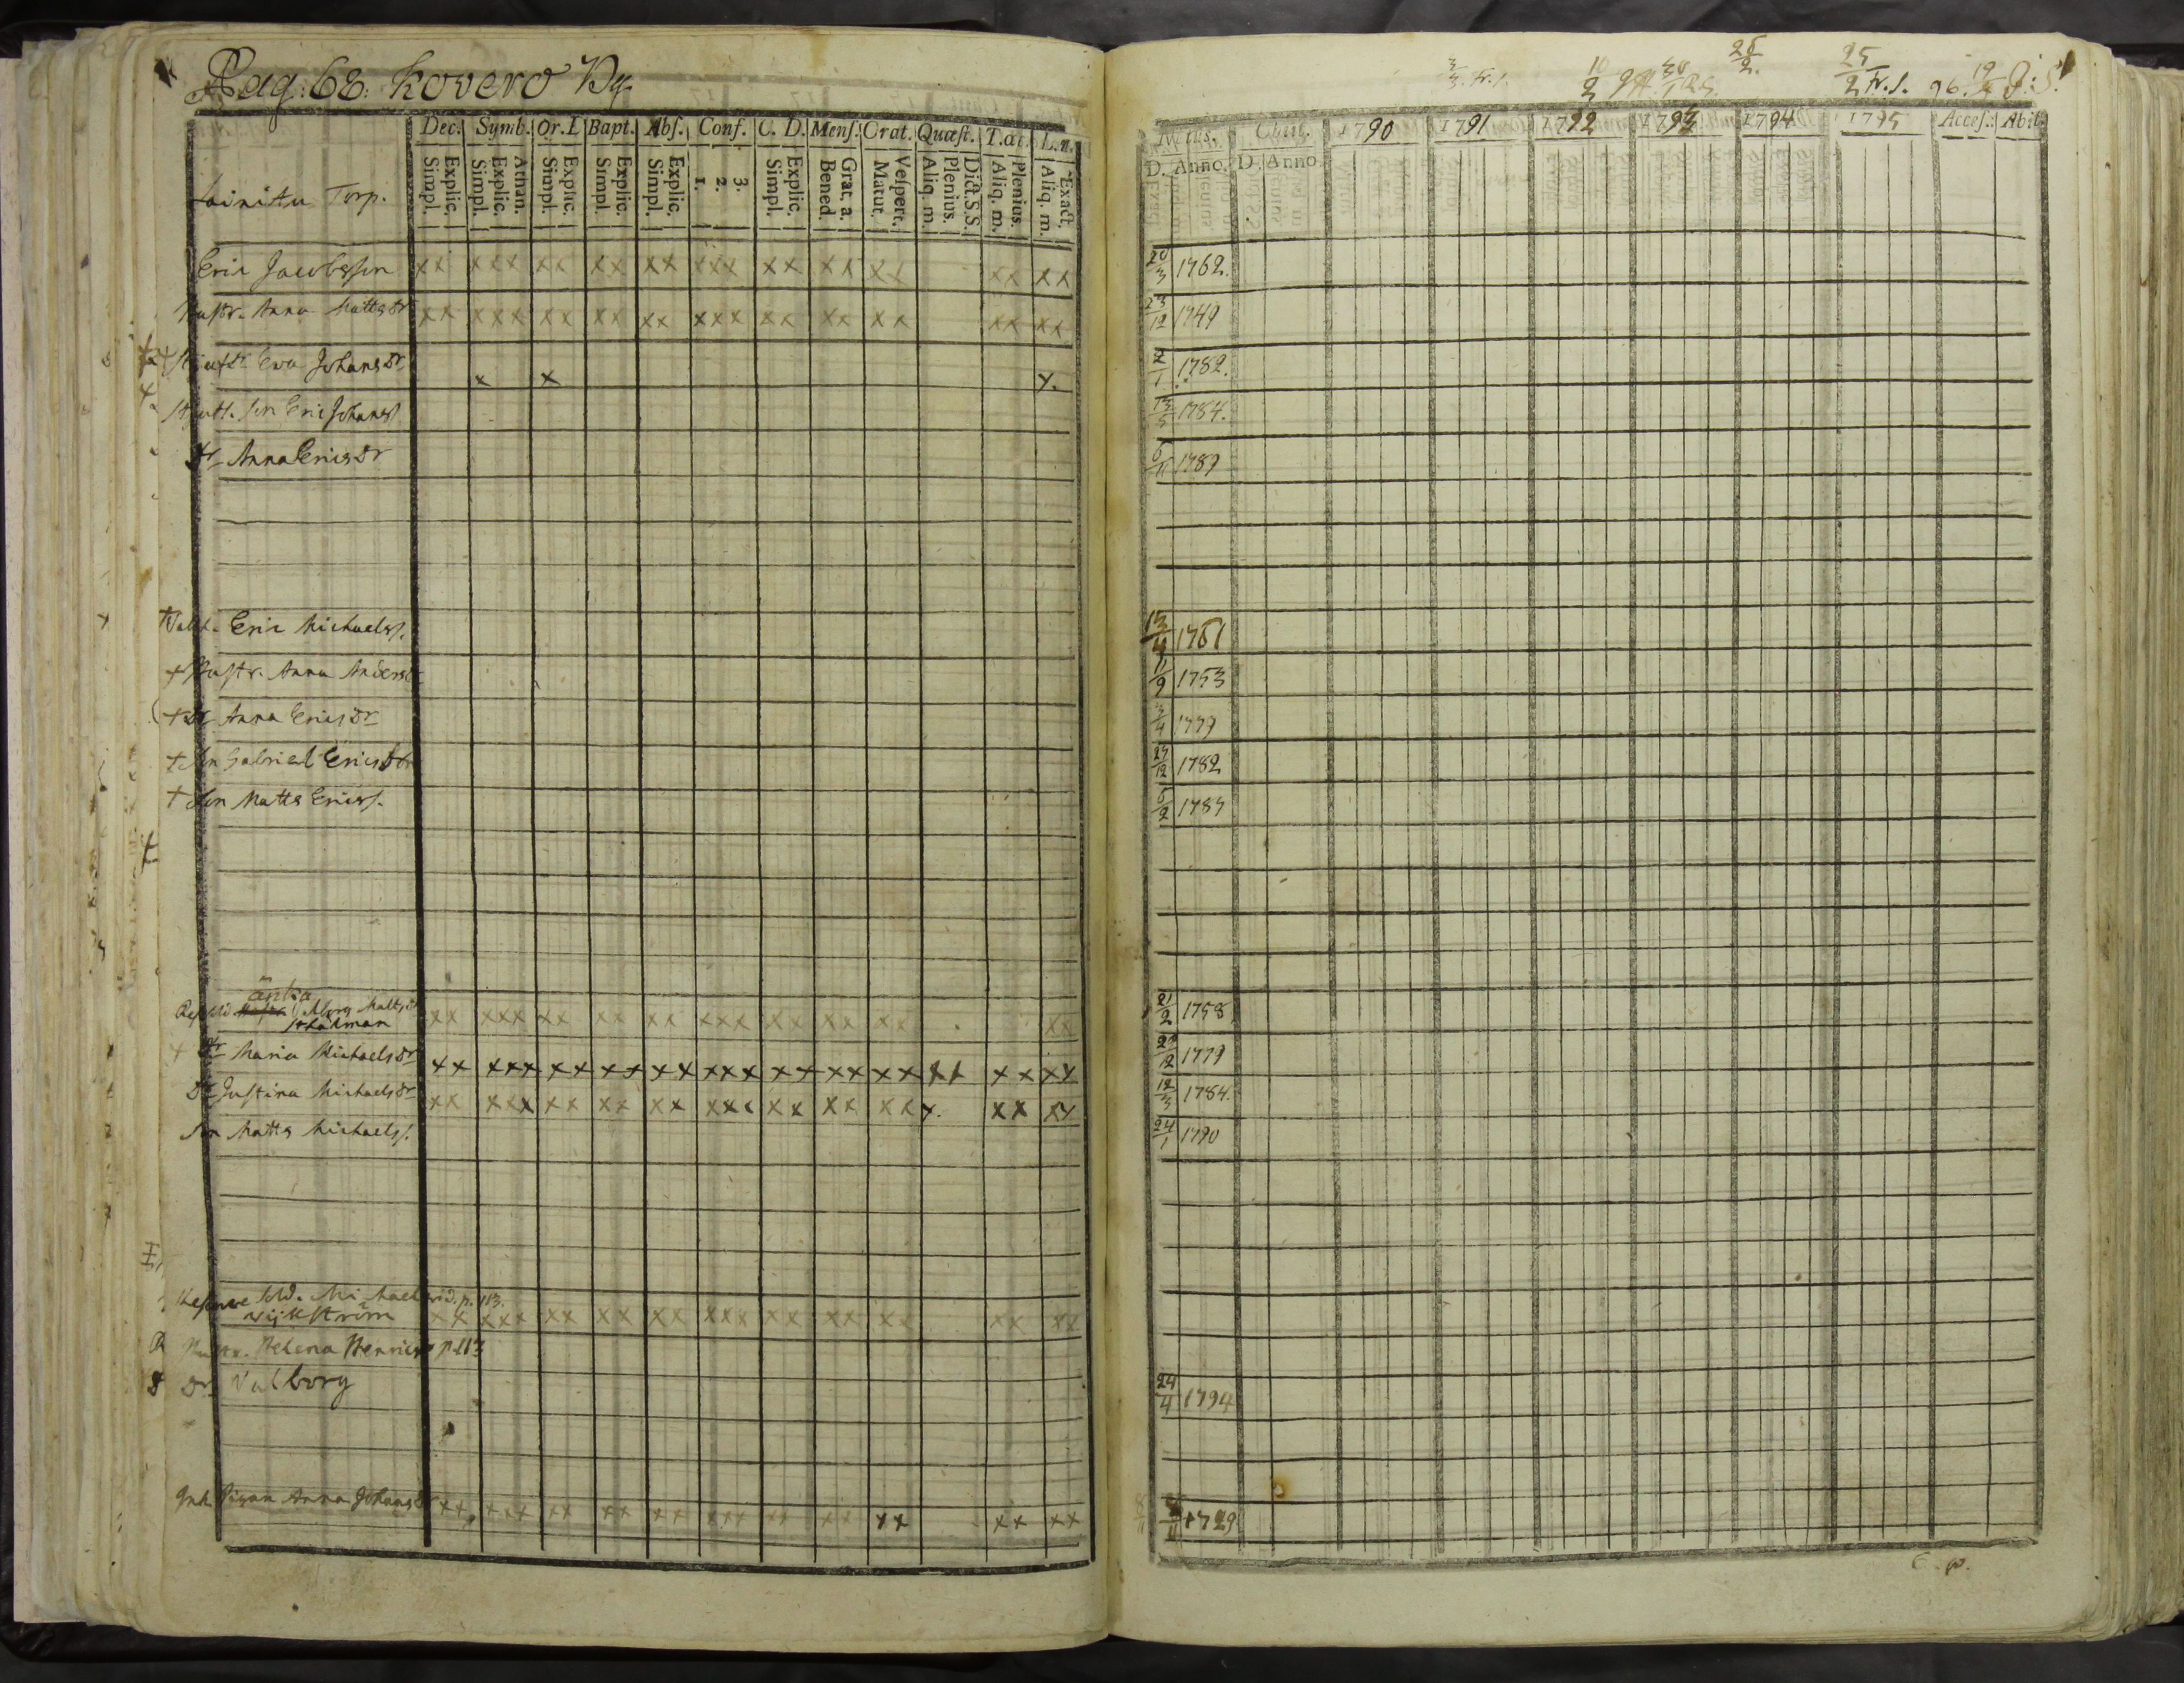 Pag: 68. Kovero By.
Dec. Symb. Or. D. Bapt. Abs. Conf. C. D. Mens. Orat. Quæst. T. æc. L. n.
Explic. Simpl. Athan. Explic. Simpl. Explic. Simpl. Explic. Simpl. Explic. Simpl. 3. 2. 1. Explic. Simpl. Grat. a. Bened. Vespert. Matut. Dict. S. S. Plenius. Aliq. m. Plenius. Aliq. m. Exact. Aliq. m.
Torp.
Eric Jacobsson xx xxx xx xx xx xxx xx xx xx xx xx
Hustr. Anna Mattsdr xx xxx xx xx xx xxx xx xx xx xx xx
Ewa Johansdr x x x.
son Eric Johanss
Dr Anna Ericsdr
Eric Michaelss.
+ Hustr. Anna Andersd
+ Dr Anna Ericsdr
+ Son Gabriel Ericss
+ Son Matts Ericss.
änka
Matts xx xxx xx xx xx xxx xx xx xx xx
+ Dr Maria Michaelsdr xx xxx xx xx xx xxx xx xx xx xx xx xx
Dr Justina Michaelsdr xx xxx xx xx xx xxx xx xx xx x. xx xx
Son Matts Michaelss.
Sold. Michael vid. p. 113.
Wijkström xx xxx xx xx xx xxx xx xx xx xx xx
Hustr. Helena Henrics p 113
Dr Valborg
Inh. Pigan Anna Johansdr xx xxx xx xx xx xxx xx xx xx xx xx
3/3 Fr. S. 10/2 25/2. 25/2 Fr. S. 96. 19/
D. Anno. D. Anno. 1790 1791 1792 1793 1794 1795 Acces. Abit.
20/3 1762.
23/12 1749
2/1 1782.
13/5 1784.
6/11 1789
13/4 1751
11/9 1753
3/4 1779
27/12 1782
6/2 1785
21/2 1758
20/12 1779
12/3 1784.
24/1 1790
24/4 1794
1729